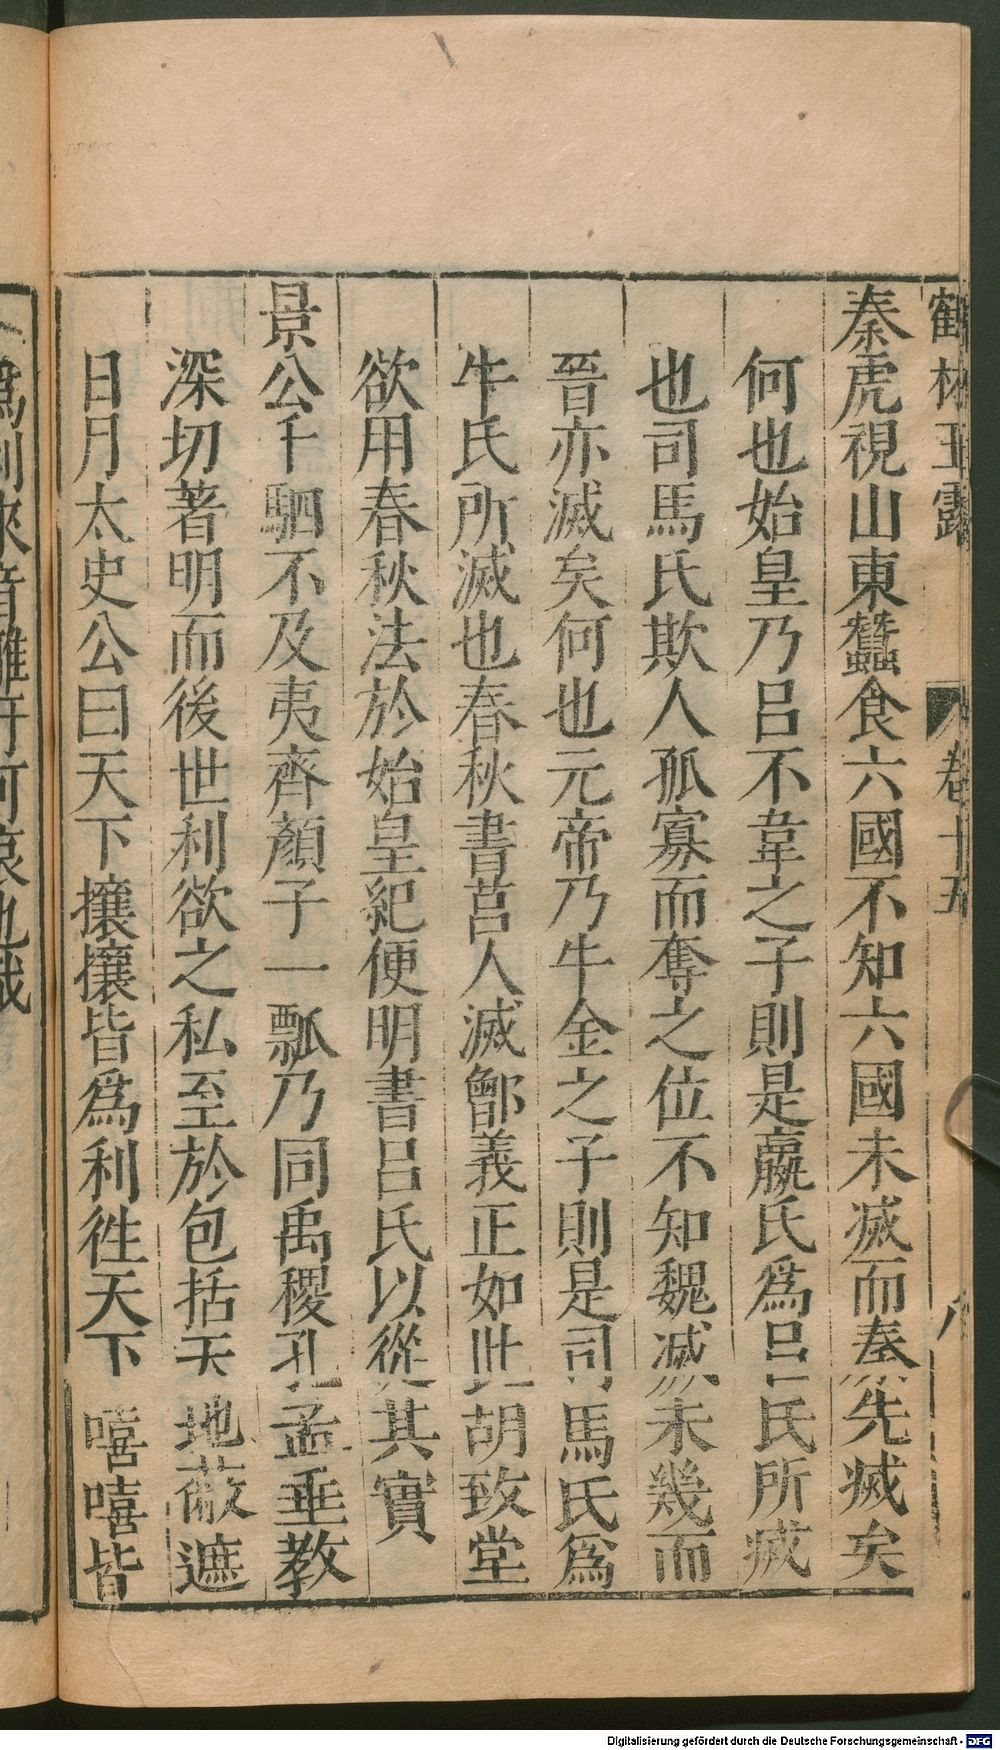 鶴林玉露 卷十五 八
秦虎視山東蠶食六國不知六國未滅而秦先滅矣
何也始皇乃呂不韋之子則是嬴氏爲呂氏所滅
也司馬氏欺人孤寡而奪之位不知魏滅未幾而
晉亦滅矣何也元帝乃牛金之子則是司馬氏爲
牛氏所滅也春秋書莒人滅鄫義正如此胡致堂
欲用春秋法於始皇紀便明書呂氏以從其實
景公千駟不及夷齊顏子一瓢乃同禹稷孔孟垂教
深切著明而後世利欲之私至於包括天地蔽遮
日月太史公曰天下攘攘皆爲利徃天下嘻嘻皆
爲利來音雖可哀也哉
Digitalisierung gefördert durch die Deutsche Forschungsgemeinschaft - DFG